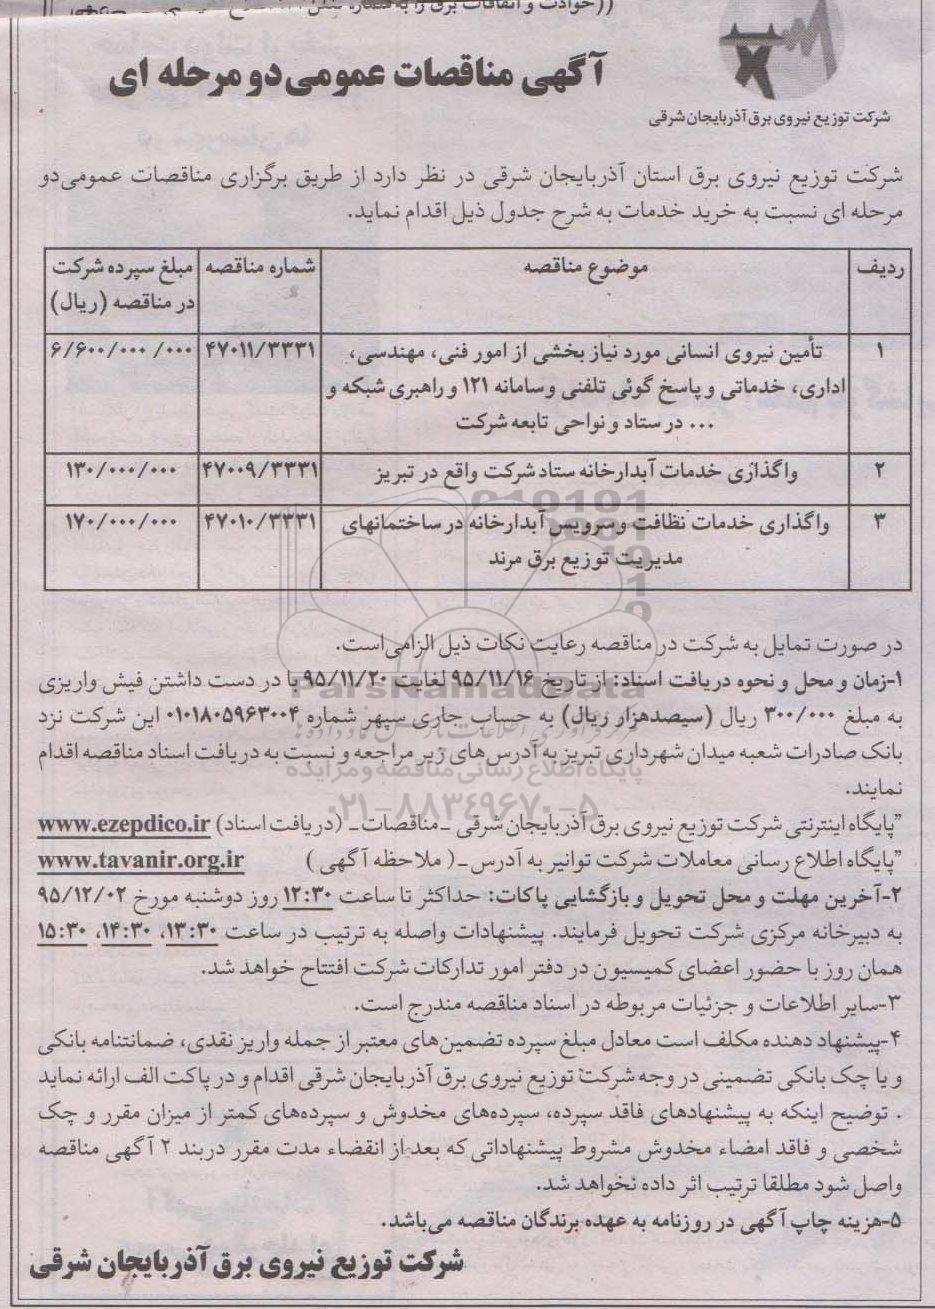 ((حوادث و اتفاقات برق را به شماره
آگهی مناقصات عمومی دو مرحله ای
شرکت توزیع نیروی برق آذربایجان شرقی
شرکت توزیع نیروی برق استان آذربایجان شرقی در نظر دارد از طریق برگزاری مناقصات عمومی دو
مرحله ای نسبت به خرید خدمات به شرح جدول ذیل اقدام نماید.
ردیف موضوع مناقصه شماره مناقصه مبلغ سپرده شرکت
در مناقصه (ریال)
۱ تأمین نیروی انسانی مورد نیاز بخشی از امور فنی، مهندسی، ۴۷۰۱۱/۳۳۳۱ ۶/۶۰۰/۰۰۰/۰۰۰
اداری، خدماتی و پاسخ گوئی تلفنی وسامانه ۱۲۱ و راهبری شبکه و
... در ستاد و نواحی تابعه شرکت
۲ واگذاری خدمات آبدارخانه ستاد شرکت واقع در تبریز ۴۷۰۰۹/۳۳۳۱ ۱۳۰/۰۰۰/۰۰۰
۳ واگذاری خدمات نظافت و سرویس آبدارخانه در ساختمانهای ۴۷۰۱۰/۳۳۳۱ ۱۷۰/۰۰۰/۰۰۰
مدیریت توزیع برق مرند
در صورت تمایل به شرکت در مناقصه رعایت نکات ذیل الزامی است.
۱-زمان و محل و نحوه دریافت اسناد: از تاریخ ۹۵/۱۱/۱۶ لغایت ۹۵/۱۱/۲۰ با در دست داشتن فیش واریزی
به مبلغ ۳۰۰/۰۰۰ ریال (سیصدهزار ریال) به حساب جاری سپهر شماره ۰۱۰۱۸۰۵۹۶۳۰۰۴ این شرکت نزد
بانک صادرات شعبه میدان شهرداری تبریز به آدرس های زیر مراجعه و نسبت به دریافت اسناد مناقصه اقدام
نمایند.
"پایگاه اینترنتی شرکت توزیع نیروی برق آذربایجان شرقی ـ مناقصات ـ (دریافت اسناد) www.ezepdico.ir
"پایگاه اطلاع رسانی معاملات شرکت توانیر به آدرس ـ ( ملاحظه آگهی ) www.tavanir.org.ir
۲-آخرین مهلت و محل تحویل و بازگشایی پاکات: حداکثر تا ساعت ۱۲:۳۰ روز دوشنبه مورخ ۹۵/۱۲/۰۲
به دبیرخانه مرکزی شرکت تحویل فرمایند. پیشنهادات واصله به ترتیب در ساعت ۱۳:۳۰، ۱۴:۳۰، ۱۵:۳۰
همان روز با حضور اعضای کمیسیون در دفتر امور تدارکات شرکت افتتاح خواهد شد.
۳-سایر اطلاعات و جزئیات مربوطه در اسناد مناقصه مندرج است.
۴-پیشنهاد دهنده مکلف است معادل مبلغ سپرده تضمین های معتبر از جمله واریز نقدی، ضمانتنامه بانکی
و یا چک بانکی تضمینی در وجه شرکت توزیع نیروی برق آذربایجان شرقی اقدام و در پاکت الف ارائه نماید
. توضیح اینکه به پیشنهادهای فاقد سپرده، سپرده‌های مخدوش و سپرده‌های کمتر از میزان مقرر و چک
شخصی و فاقد امضاء مخدوش مشروط پیشنهاداتی که بعد از انقضاء مدت مقرر دربند ۲ آگهی مناقصه
واصل شود مطلقا ترتیب اثر داده نخواهد شد.
۵-هزینه چاپ آگهی در روزنامه به عهده برندگان مناقصه می‌باشد.
شرکت توزیع نیروی برق آذربایجان شرقی
ParsNamadData
پایگاه اطلاع رسانی مناقصه و مزایده
۰۲۱-۸۸۳۴۹۶۷۰-۵